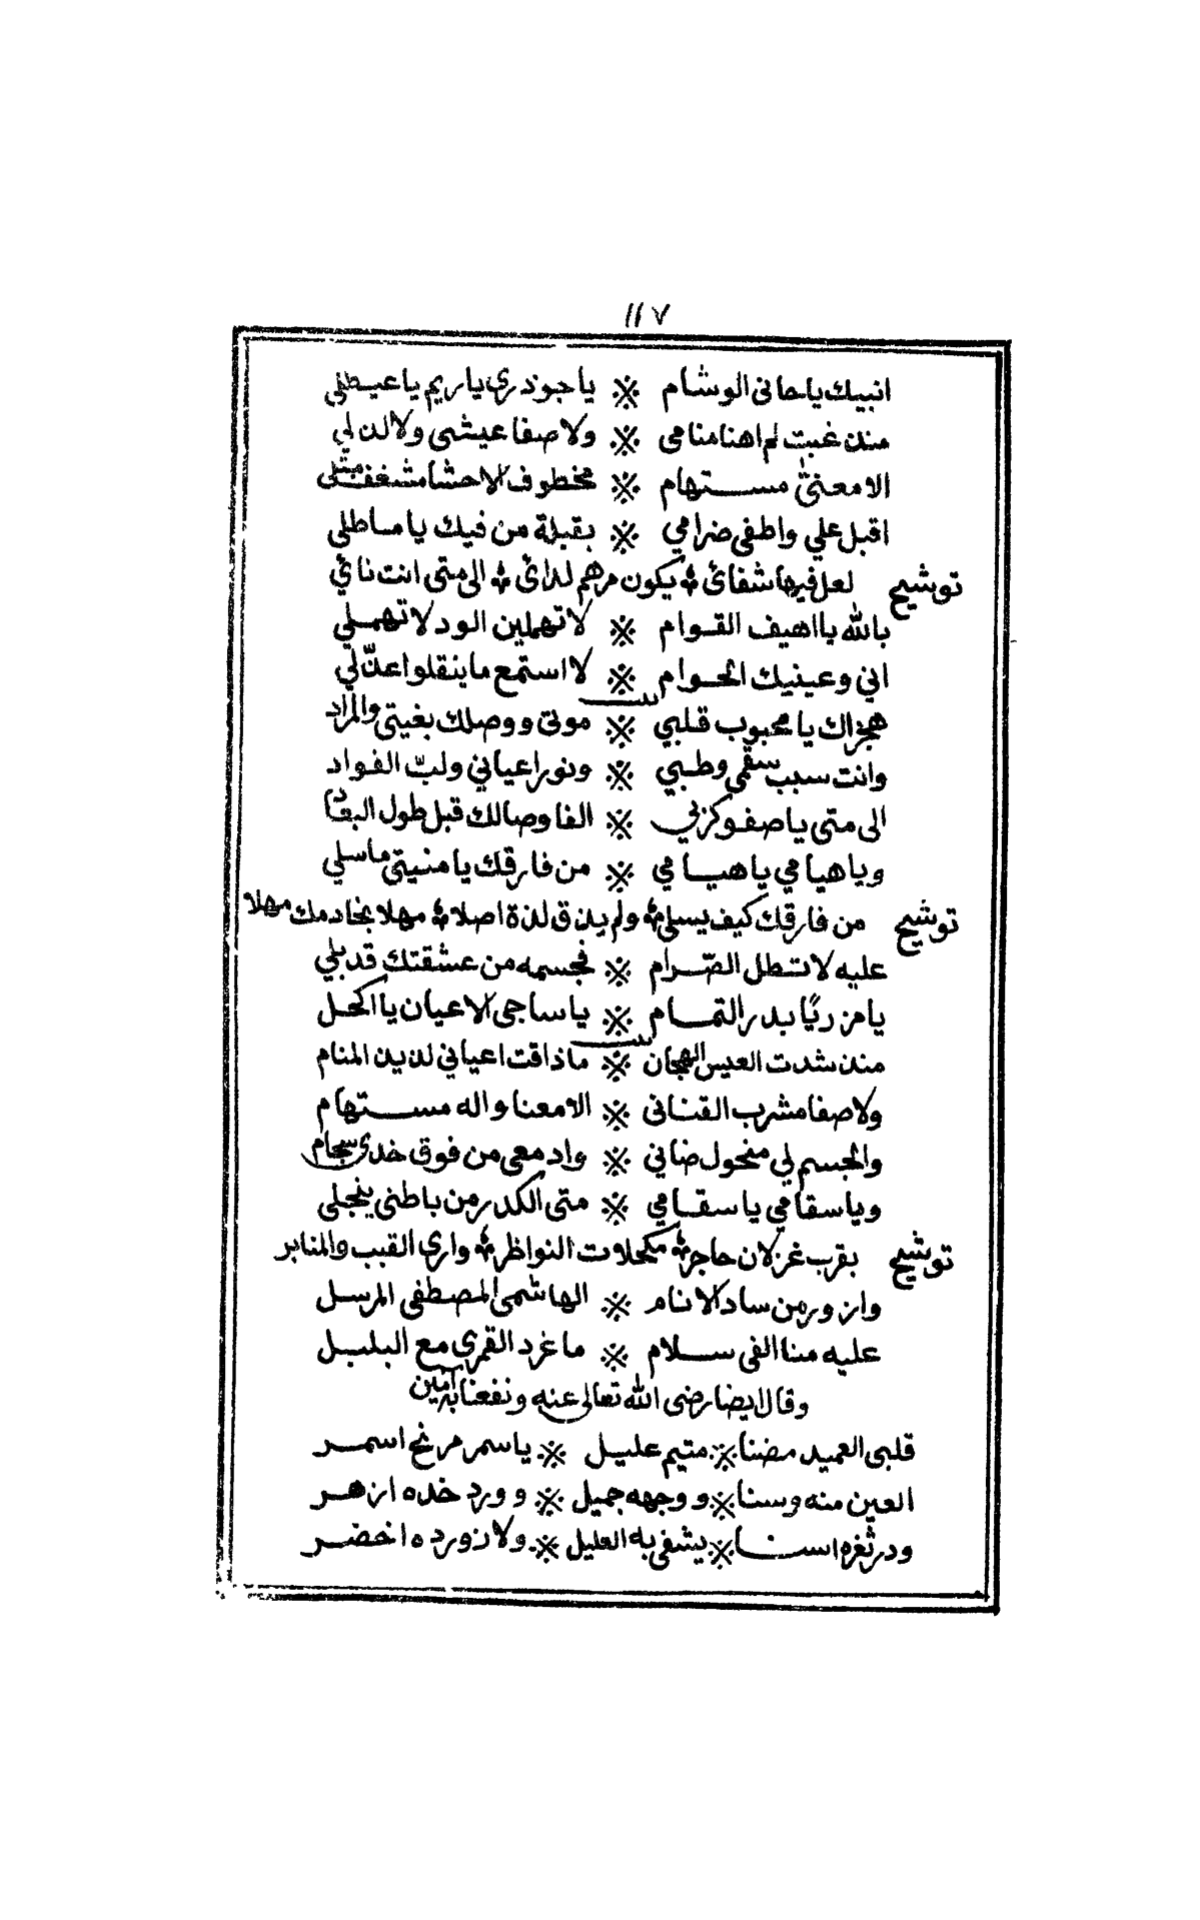 ١١٧
انبيك ياحانى الوشام ※ ياجوذرى ياريم ياعيطلى
منذ غبت لم اهنا منامى ※ ولاصفا عيشى ولا لذ لي
الا معنىّ مستهام ※ مخطوف الاحشا مشغف مثلى
اقبل علي واطفى ضرامي ※ بقبلة من فيك ياماطلى
توشيح لعل فيها شفائ ※ يكون مرهم لدائ ※ الى متى انت نائي
بالله يااهيف القوام ※ لاتهملين الود لاتهملي
اني وعينيك الحوام ※ لا استمع ماينقلوا عذّلي
بيت
هجراك يا محبوب قلبي ※ موتى ووصلك بغيتى والمراد
وانت سبب سقمى وطبي ※ ونور اعياني ولبّ الفواد
الى متى ياصفو كزبي ※ الفا وصالك قبل طول البعاد
وياهيامي ياهيامي ※ من فارقك يا منيتى ماسلي
توشيح من فارقك كيف يسلى ※ ولم يذق لذة اصلا ※ مهلا بخادمك مهلا
عليه لاتطل الصّرام ※ فجسمه من عشقتك قد بلي
يامزريًا بدر التمام ※ ياساجى الاعيان يااكحل
بيت
منذ شدت العيس الهجان ※ ماذاقت اعياني لذيذ المنام
ولاصفا مشرب القنانى ※ الا معنا واله مستهام
والجسم لي منحول ضاني ※ وادمعى من فوق خدى سجام
وياسقامي ياسقامي ※ متى الكدر من باطنى ينجلى
توشيح بقرب غزلان حاجر ※ مكحلات النواظر ※ وارى القبب والمنابر
وازور من ساد الانام ※ الهاشمى المصطفى المرسل
عليه منا الفى سلام ※ ماغرد القمرى مع البلبل
وقال ايضا رضى الله تعالى عنه ونفعنا به آمين
قلبى العميد مضنا ※ متيم عليل ※ ياسمر مرنح اسمر
العين منه وسنا ※ ووجهه جميل ※ وورد خده ازهر
ودر ثغره اسنا ※ يشفى به العليل ※ ولازورده اخضر